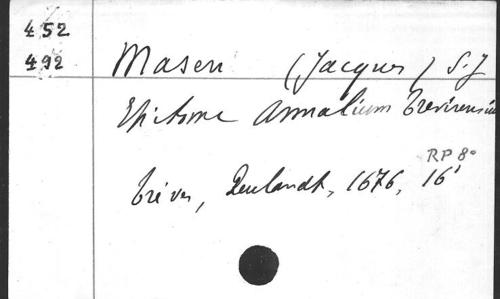 452
492
Masen (Jacques) S.J
Epitome Annalium Trevirensiu
Trèves, Reulandt, 1676, 16°
RP 8°